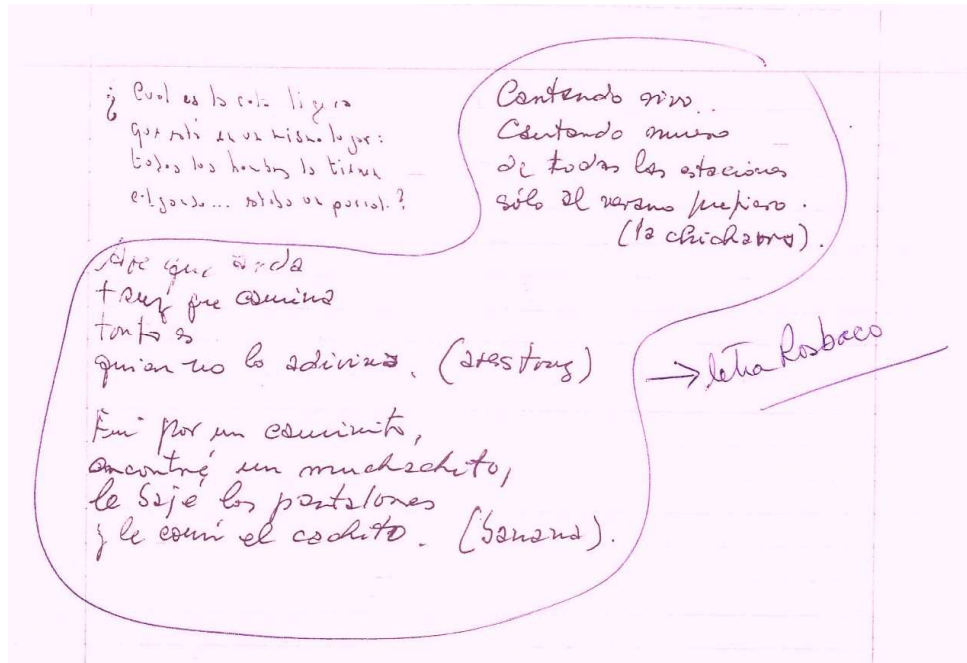 ¿Cual es la cosa ligera
que está en un mismo lugar:
todos los hombres la tienen
... un portal?
Cantando vivo.
Cantando muero
de todas las estaciones
sólo al verano prefiero.
(la chicharra).
Ave que anda
truz que camina
tonto es
quien no lo adivina. (avestruz)
Fui por un caminito,
encontré un muchachito,
le bajé los pantalones
y le comí el cochito. (banana).
→ letra Rosbaco